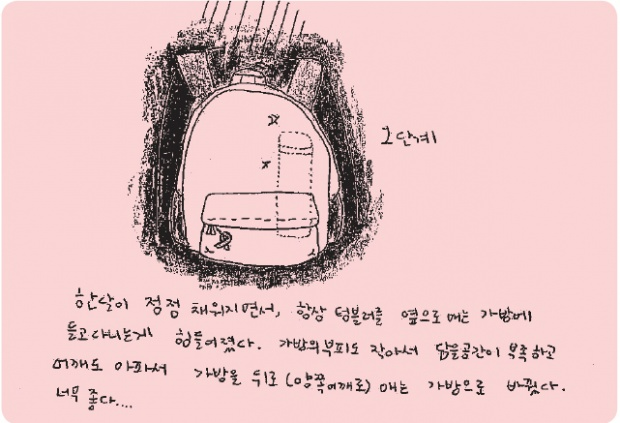 2단계
한달이 점점 채워지면서, 항상 텀블러를 옆으로 매는 가방에
들고다니는게 힘들어졌다. 가방의부피도 작아서 담을공간이 부족하고
어깨도 아파서 가방을 뒤로 (양쪽어깨로) 매는 가방으로 바꿨다.
너무 좋다....